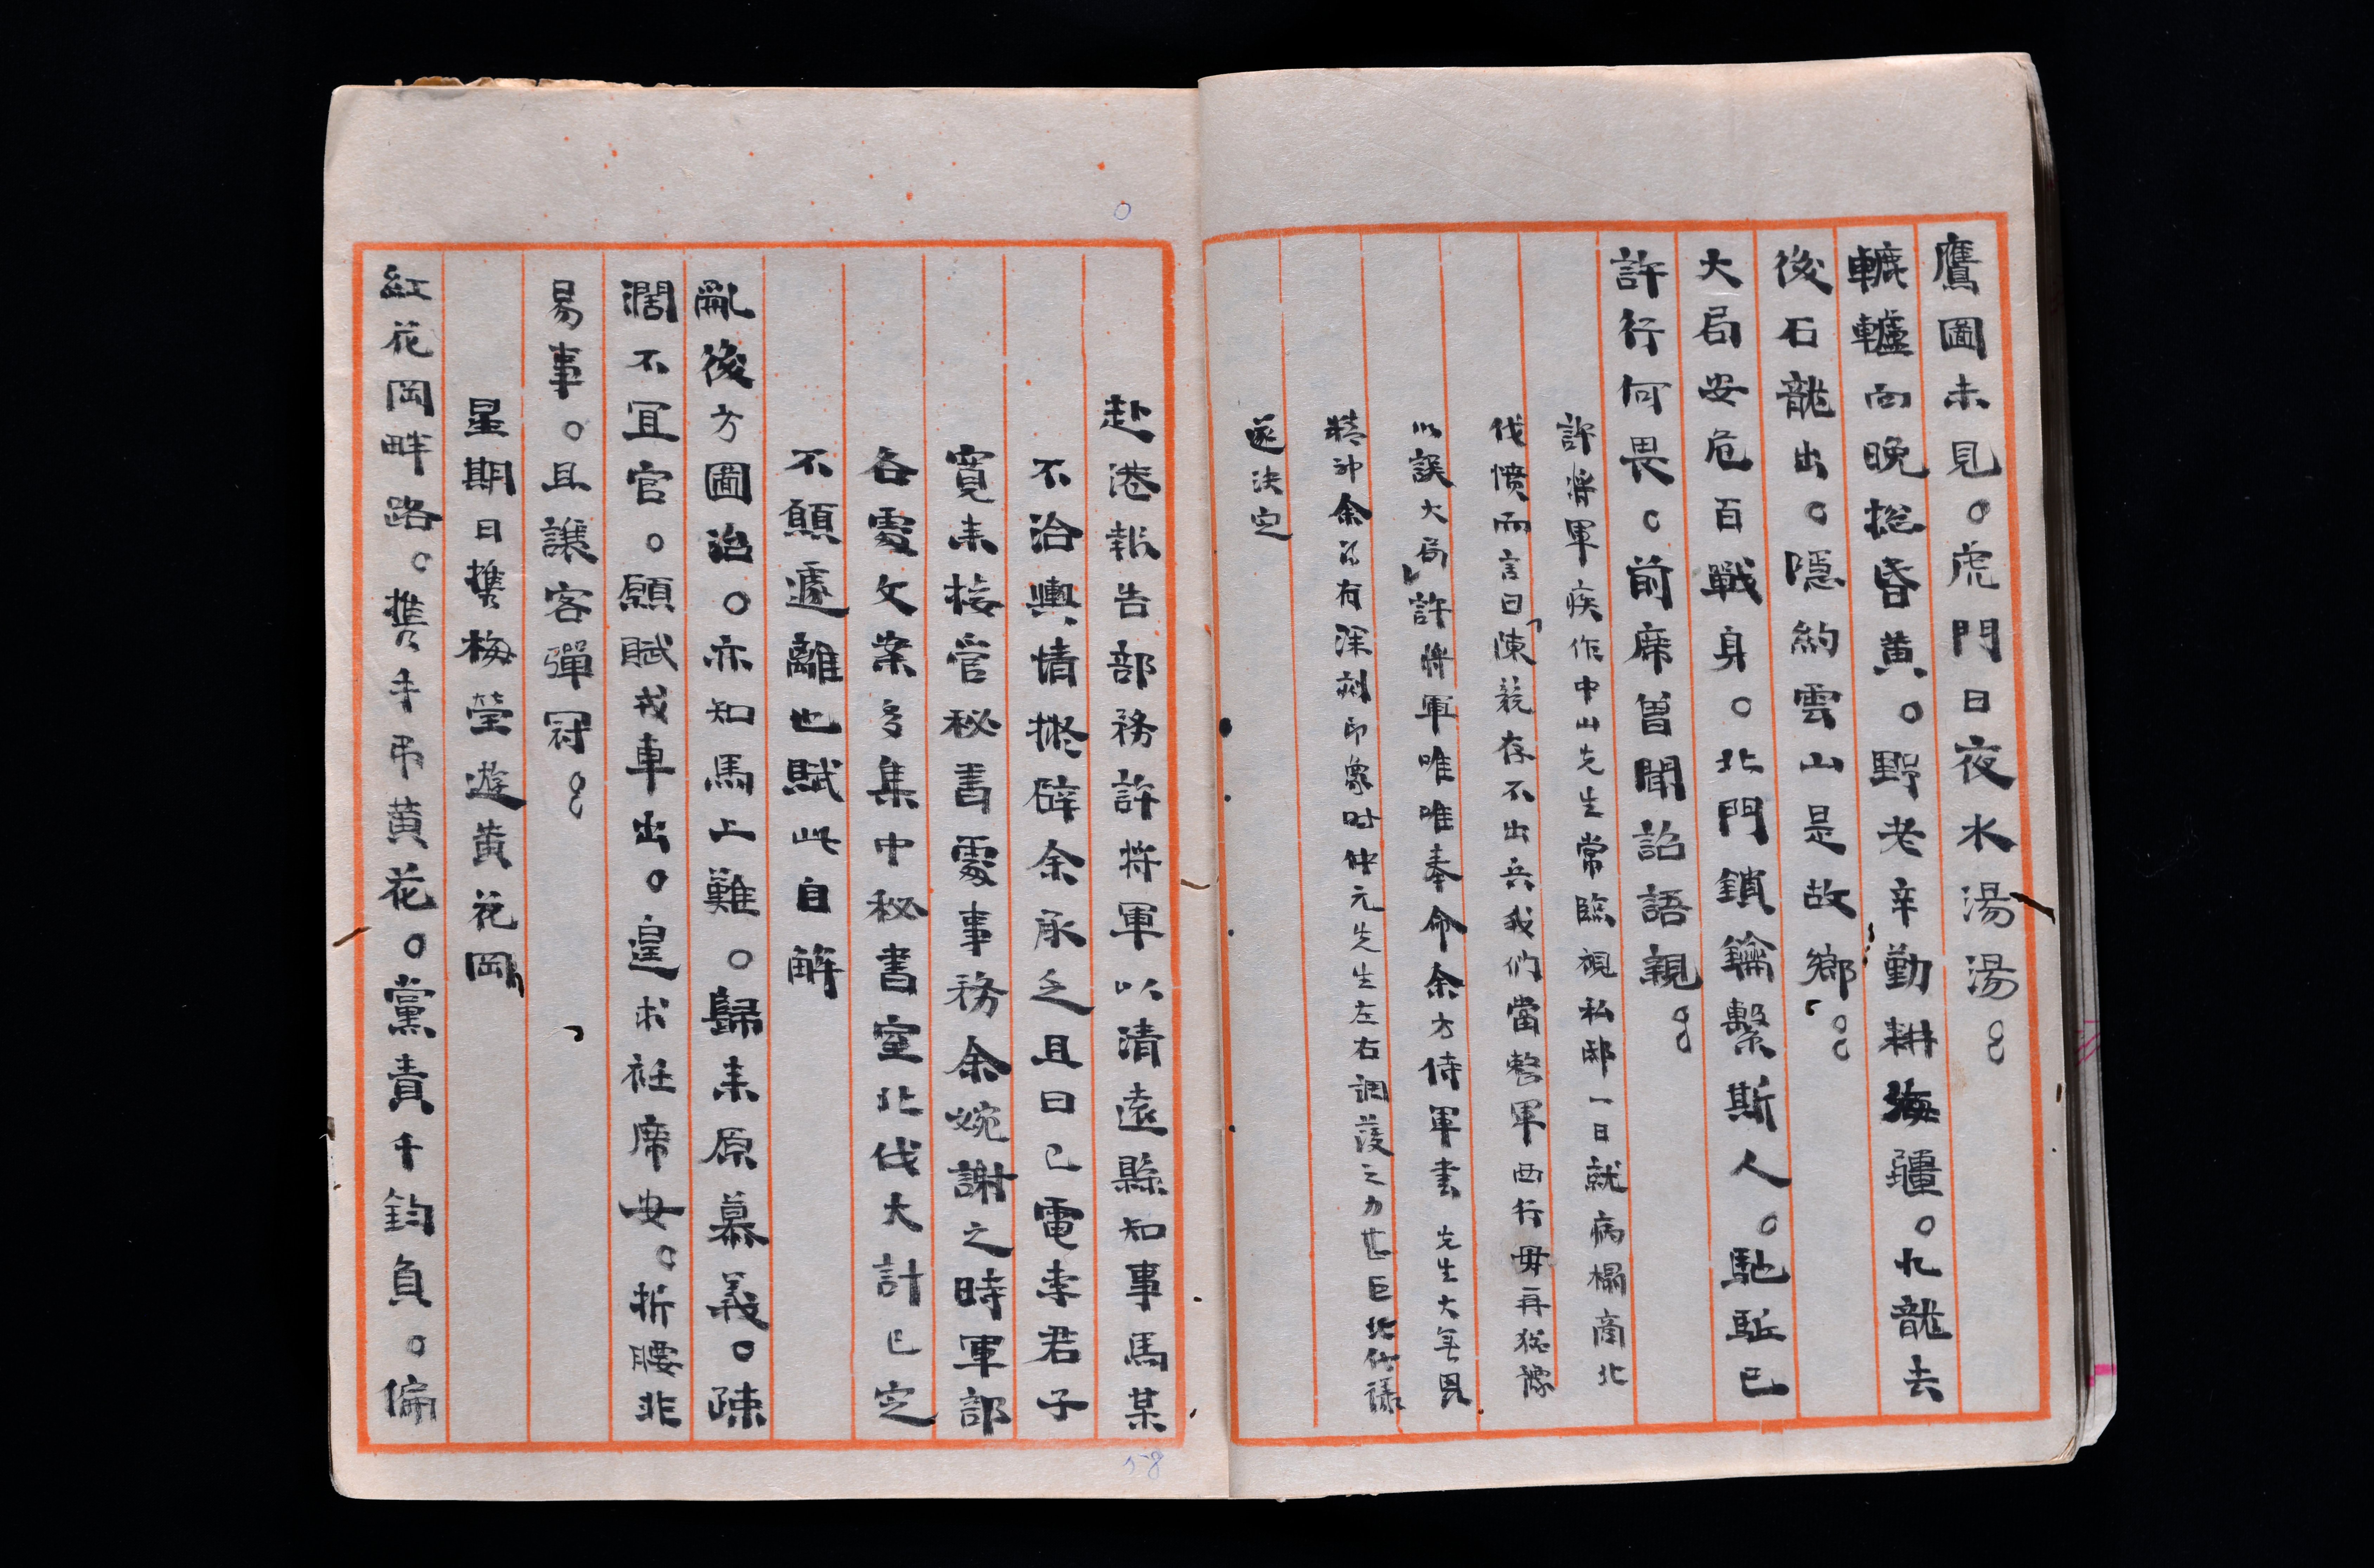 鷹圖未見。虎門日夜水湯湯。
轆轤向晚挹昏黃。野老辛勤耕海疆。九龍去
後石龍出。隱約雲山是故鄉。
大局安危百戰身。北門鎖鑰繫斯人。馳驅已
許行何畏。前席曾聞詔語親。
許將軍疾作中山先生常臨視私邸一日就病榻商北
伐憤而言曰「陳競存不出兵我們當整軍西行毋再猶豫
以誤大局」許將軍唯唯奉命余方侍軍書 先生大無畏
精神余乃有深刻印象時仲元先生左右調護之力甚巨北伐議
遂決定
赴港報告部務許將軍以清遠縣知事馬某
不洽輿情擬辟余承乏且曰已電李君子
寬來接管秘書處事務余婉謝之時軍部
各處文案多集中秘書室北伐大計已定
不願遽離也賦此自解
亂後方圖治。亦知馬上難。歸來原慕義。疎
濶不宜官。願賦戎車出。遑求衽席安。折腰非
易事。且讓客彈冠。
星期日攜梅瑩遊黃花岡
紅花岡畔路。攜手弔黃花。黨責千鈞負。偏
58